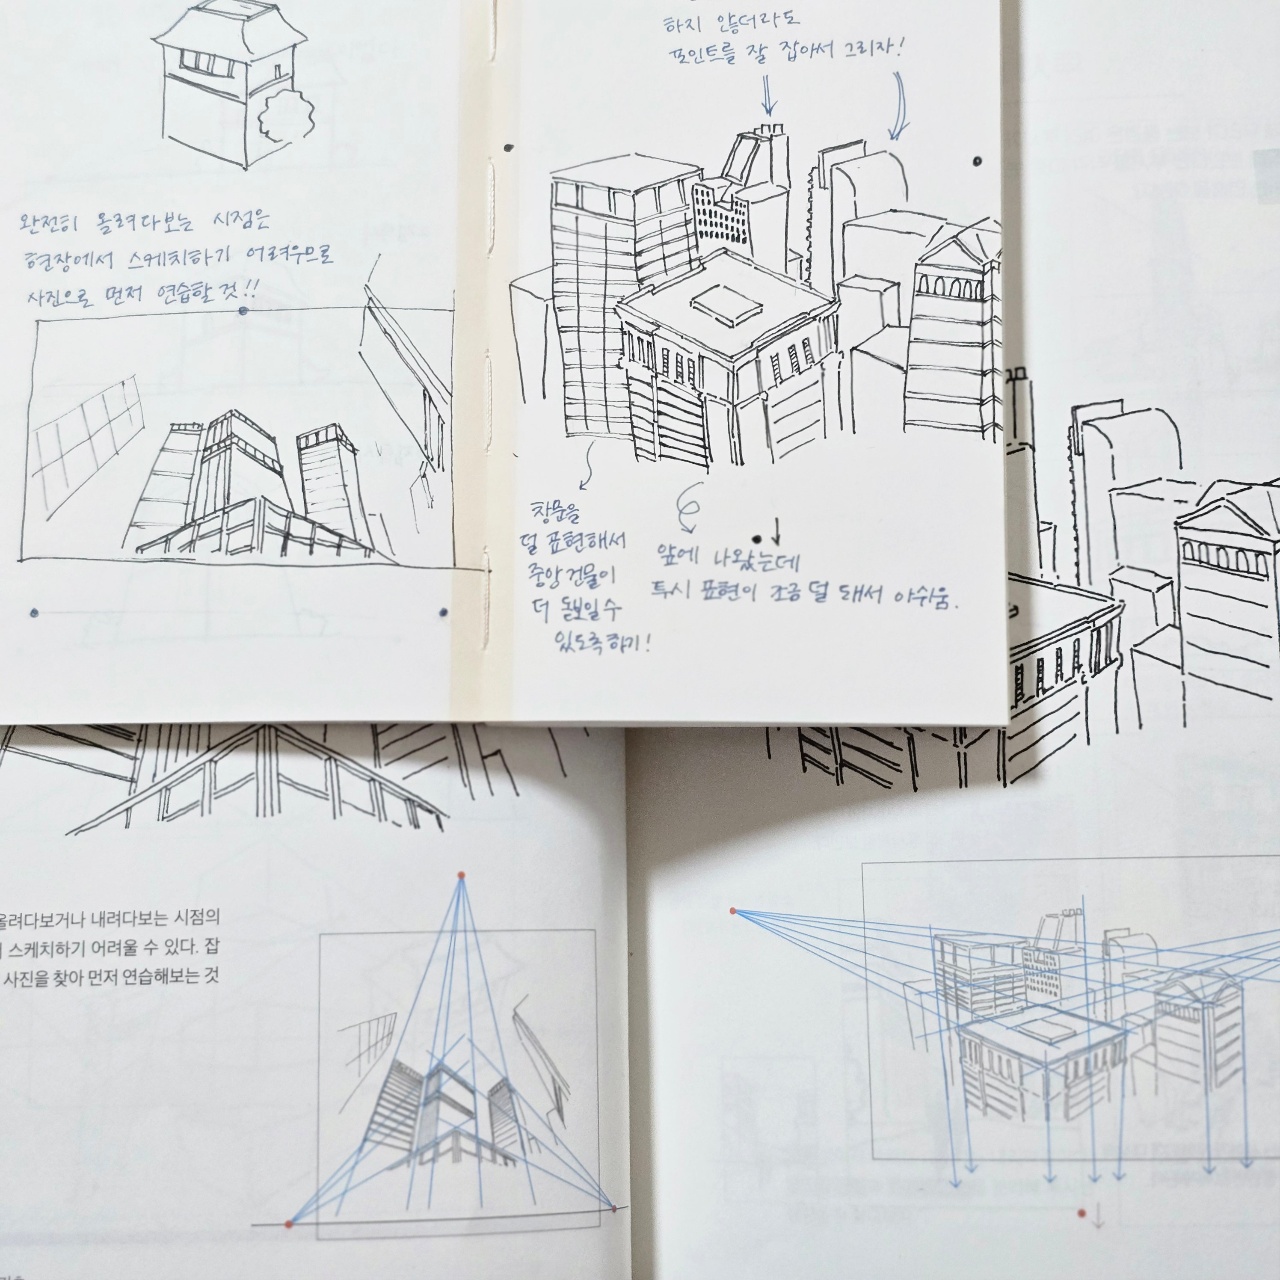 완전히 올려다보는 시점은
현장에서 스케치하기 어려우므로
사진으로 먼저 연습할 것!!
하지 않더라도
포인트를 잘 잡아서 그리자!
창문을
덜 표현해서
중앙 건물이
더 돋보일 수
있도록 하기!
앞에 나왔는데
투시 표현이 조금 덜 돼서 아쉬움.
올려다보거나 내려다보는 시점의
스케치하기 어려울 수 있다. 잡
사진을 찾아 먼저 연습해보는 것